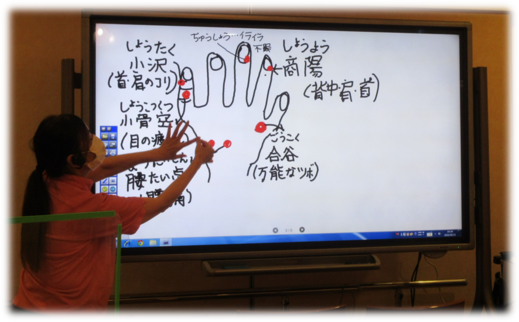 ちゅうしょう…イライラ
不眠
しょうたく
小沢
(首・肩のコリ)
しょうこつくう
小骨空
(目の疲
腰たい点
腰痛)
しょうよう
商陽
(背中・肩・首)
ごうこく
合谷
(万能なツボ)